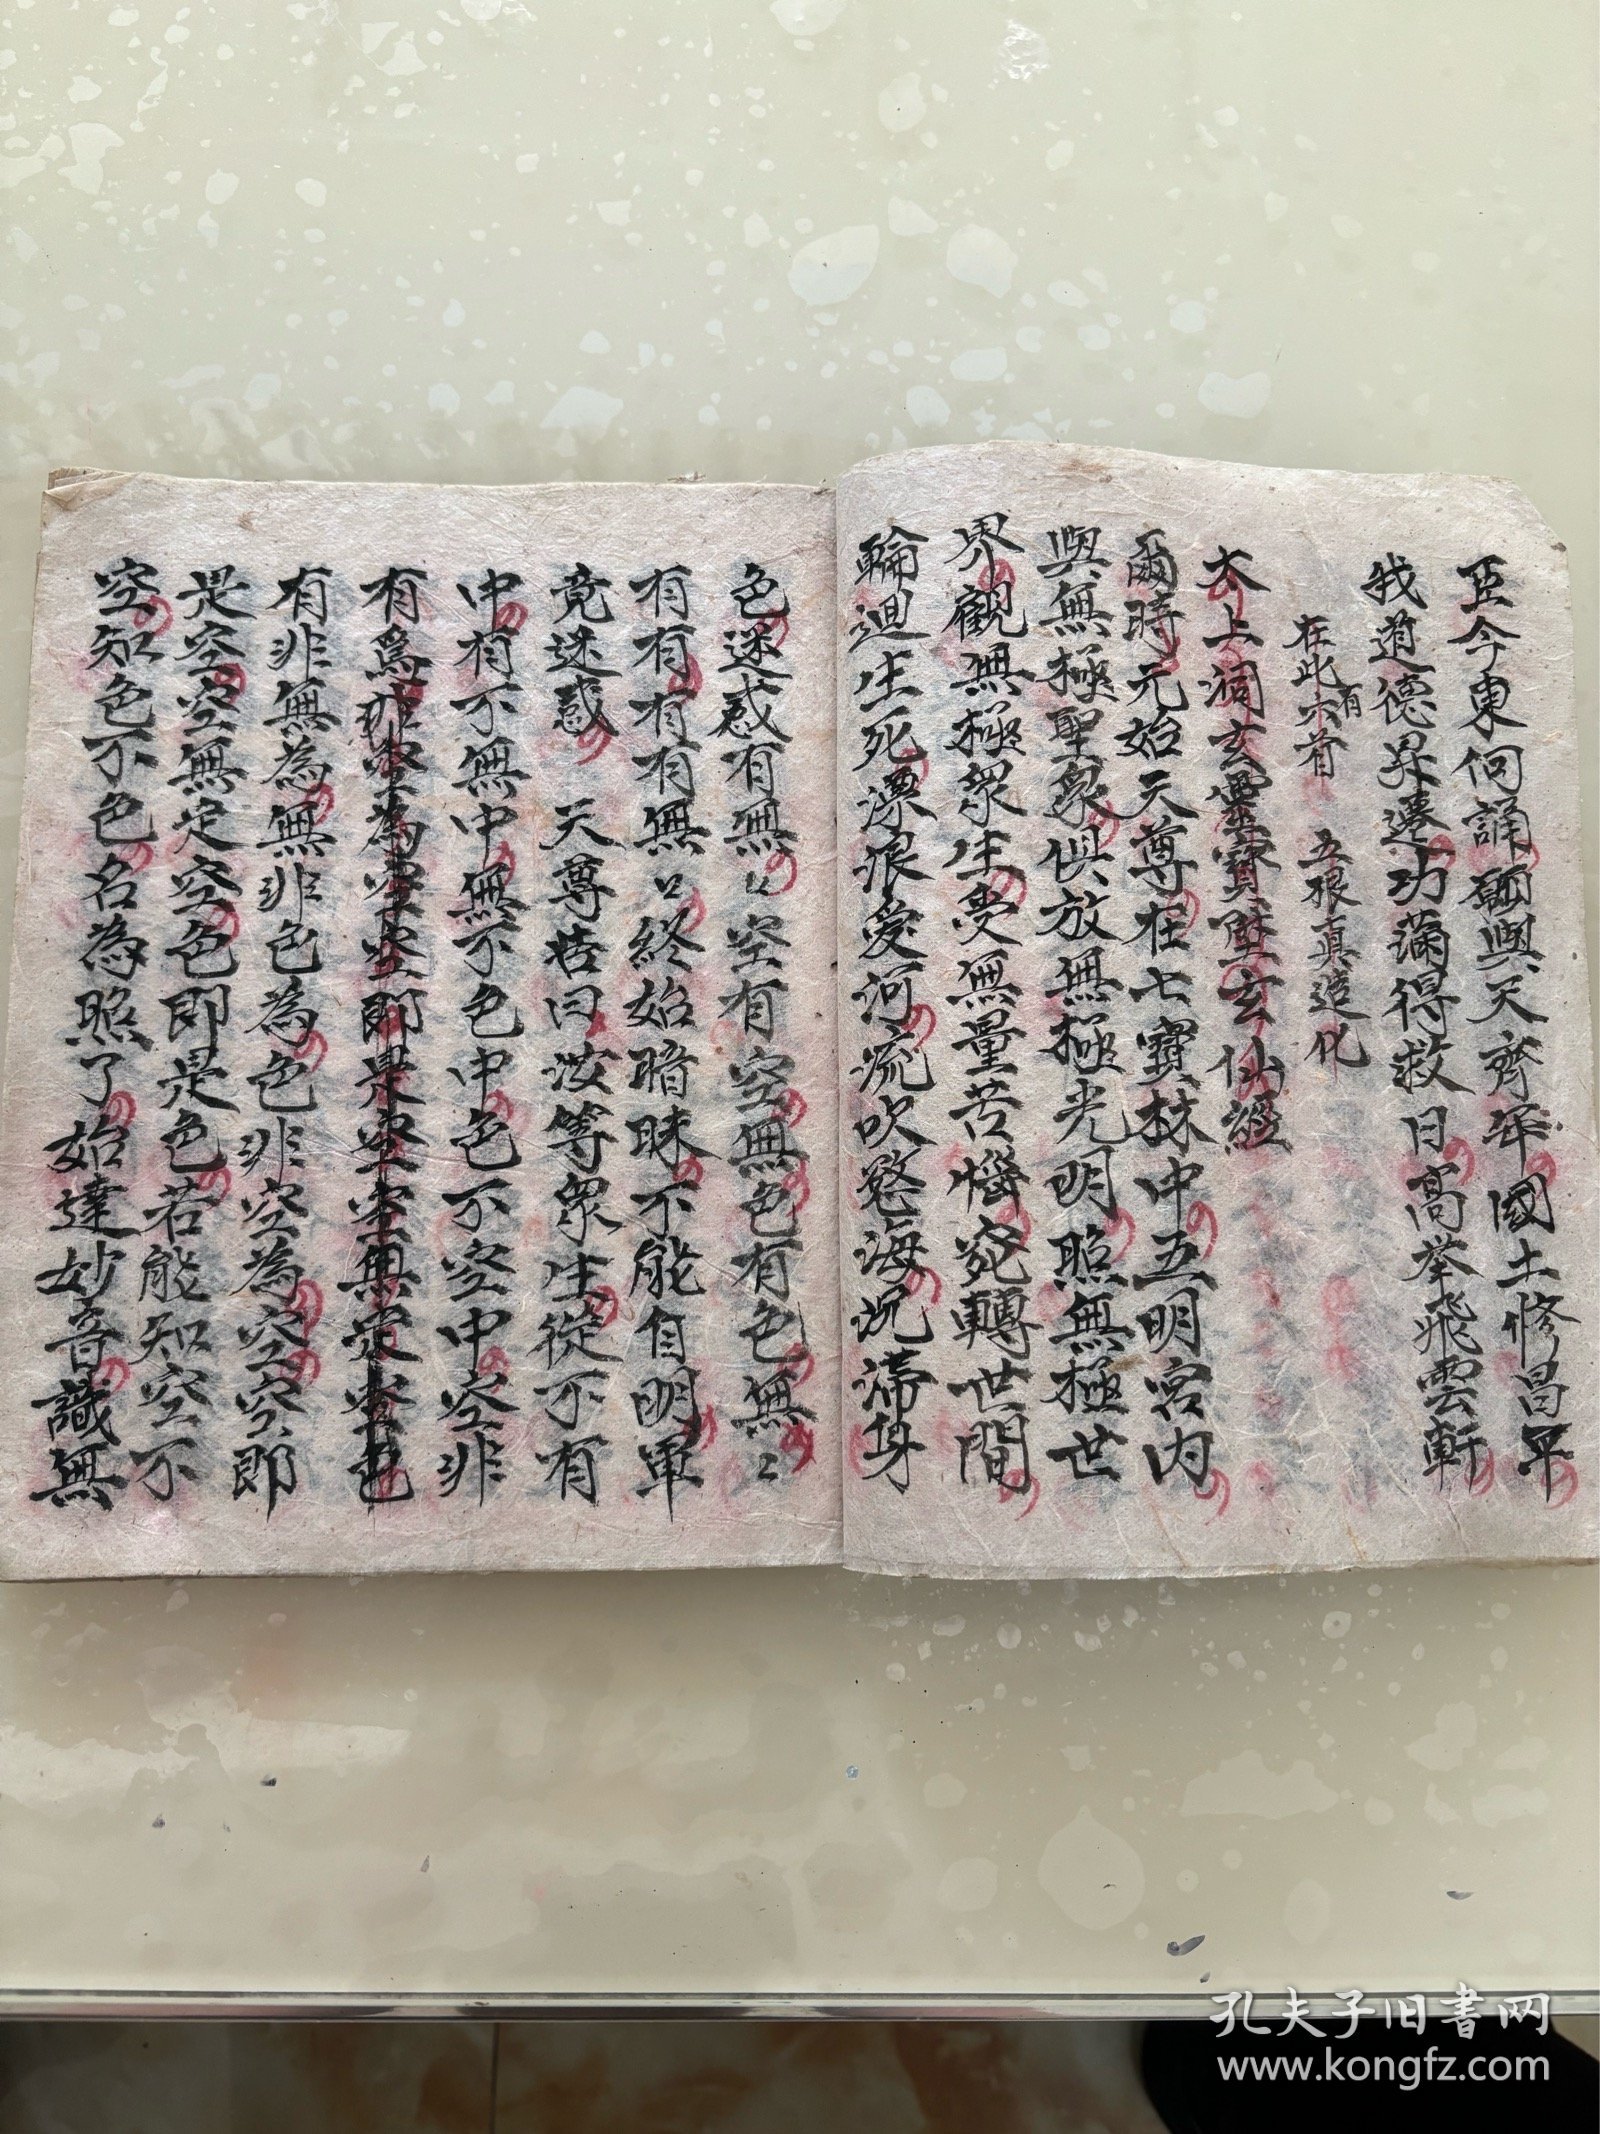 臣今東向誦願與天齊年國土修昌平
我道德昇遷功滿得救日高举飛雲軒
在此有六首　五根真造化
太上洞玄靈寳陞玄仙經
爾時元始天尊在七寳林中五明宮内
與無極聖衆俱放無極光明照無極世
界觀無極衆生受無量苦惱宛轉世間
輪迴生死漂浪愛河流吹慾海沉滯身
色迷惑有無〻空有空無色有色無〻
有有有有無〻終始暗昧不能自明畢
竟迷惑　天尊告曰汝等衆生從不有
中有不無中無不色中色不空中空非
有爲非空為空空即是空空無定空色
有非無為無非色為色非空為空空即
是空空無定空色即是色若能知空不
空知色不色名為照了始達妙音識無
孔夫子旧書网
www.kongfz.com